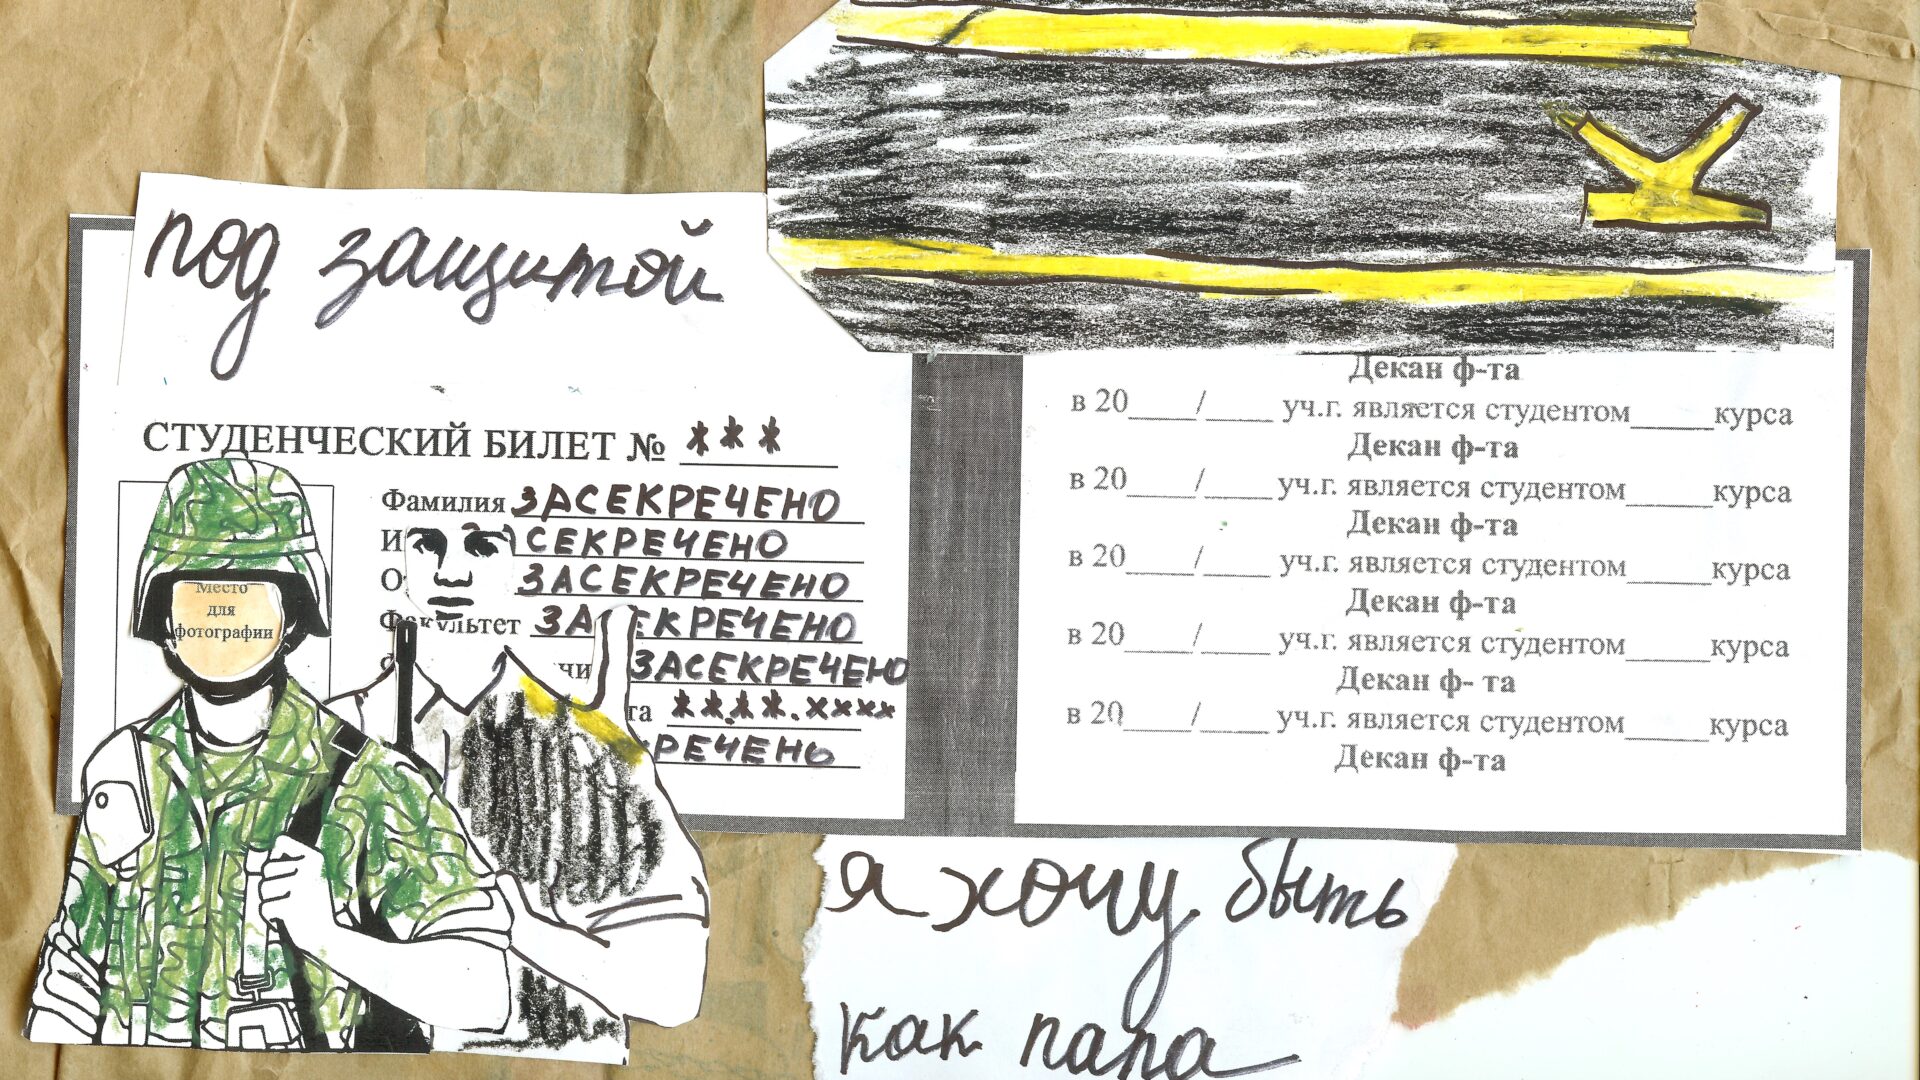 под защитой
СТУДЕНЧЕСКИЙ БИЛЕТ № ***
Фамилия ЗАСЕКРЕЧЕНО
И СЕКРЕЧЕНО
О ЗАСЕКРЕЧЕНО
Факультет ЗАСЕКРЕЧЕНО
ЗАСЕКРЕЧЕНО
та **.**.xxxx
РЕЧЕНЬ
Место
для
фотографии
К
Декан ф-та
в 20____/____ уч.г. является студентом_____курса
Декан ф-та
в 20____/____ уч.г. является студентом_____курса
Декан ф-та
в 20____/____ уч.г. является студентом_____курса
Декан ф-та
в 20____/____ уч.г. является студентом_____курса
Декан ф- та
в 20____/____ уч.г. является студентом_____курса
Декан ф-та
я хочу быть
как папа